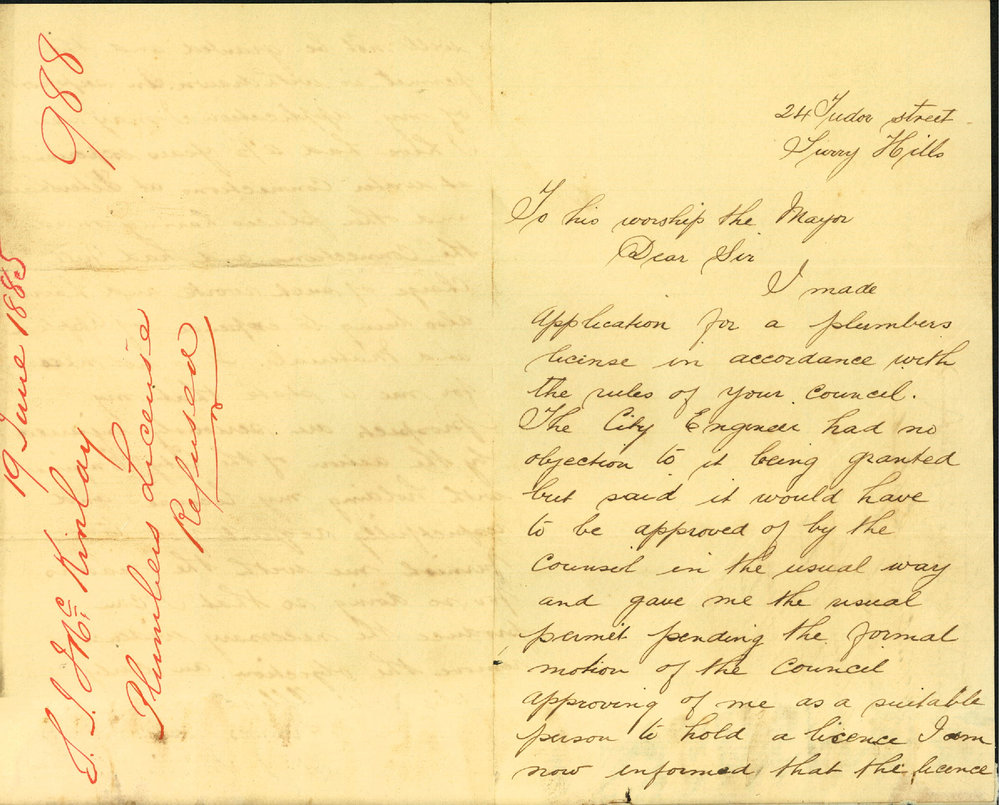 988
19 June 1885
S. J. McKinlay
Plumbers License
Refused
24 Tudor street
Surry Hills
To his worship the Mayor
Dear Sir
I made
application for a plumbers
license in accordance with
the rules of your council.
The City Engineer had no
objection to it being granted
but said it would have
to be approved of by the
Counsil in the usual way
and gave me the usual
permit pending the formal
motion of the Council
approving of me as a suitable
person to hold a licence I am
now informed that the licence